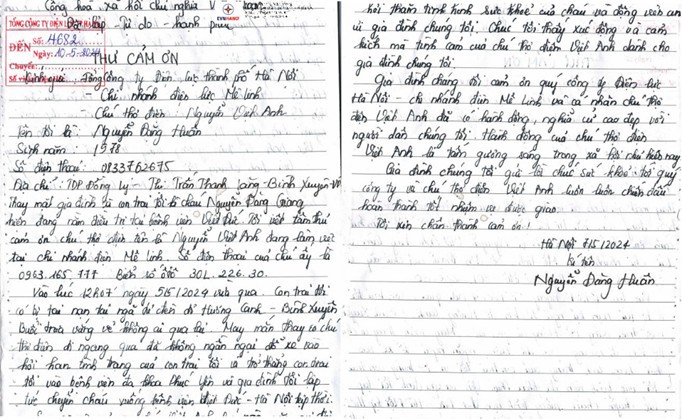 Cộng hoà xã hội chủ nghĩa V
EVNHANOI
Độc lập Tự do - hạnh phúc
TỔNG CÔNG TY ĐIỆN LỰC
ĐẾN
Số: 4682
Ngày: 10-5-2024
Chuyển:
THƯ CẢM ƠN
Kính gửi: Tổng Công ty Điện lực thành phố Hà Nội
- Chi nhánh điện lực Mê linh
- Chú thợ điện: Nguyễn Việt Anh
Tên tôi là: Nguyễn Đăng Huấn
Sinh năm: 1978
Số điện thoại: 0833762675
Địa chỉ: TDP Đồng Lý - Thị Trấn Thanh Lãng - Bình Xuyên - VP
Thay mặt gia đình là con trai tôi là cháu Nguyễn Đăng Giang
hiện đang nằm điều trị tại bệnh viện Việt Đức. Tôi viết tâm thư
cảm ơn chú thợ điện tên là Nguyễn Việt Anh đang làm việc
tại chi nhánh điện Mê linh. Số điện thoại của chú ấy là
0963.165.777 Biển số ôtô 30L.226.30.
Vào lúc 12h07 ngày 5/5/2024 vừa qua. Con trai tôi
có bị tai nạn tại ngã di chén đi Hương Canh - Bình Xuyên
Buổi trưa vắng vẻ không ai qua lại. May mắn thay có chú
thợ điện đi ngang qua đã không ngần ngại đỗ xe vào
hỏi han tình trạng của con trai tôi và trở thẳng con trai
tôi vào bệnh viện đa khoa Phúc Yên và gia đình tôi lập
tức chuyển cháu xuống bệnh viện Việt Đức - Hà Nội kịp thời.
hỏi thăm tình hình sức khoẻ của cháu và động viên an
ủi gia đình chúng tôi. Chúc tôi thấy xúc động và cảm
kích mà tình cảm của chú thợ điện Việt Anh dành cho
gia đình chúng tôi.
Gia đình chúng tôi cảm ơn quý công ty Điện lực
Hà Nội - chi nhánh điện Mê Linh và cá nhân chú thợ
điện Việt Anh đã có hành động, nghĩa cử cao đẹp với
người dân chúng tôi. Hành động của chú thợ điện
Việt Anh là tấm gương sáng trong xã hội như hiện nay
Gia đình chúng tôi gửi lời chúc sức khoẻ tới quý
công ty và chú thợ điện Việt Anh luôn luôn chiến đấu
hoàn thành tốt nhiệm vụ được giao.
Tôi xin chân thành cảm ơn!
Hà Nội 7/5/2024
kí tên
Nguyễn Đăng Huấn